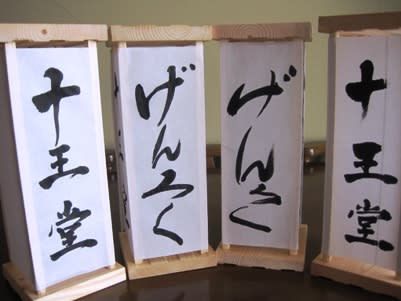 十王堂
げんろく
げんろく
十王堂